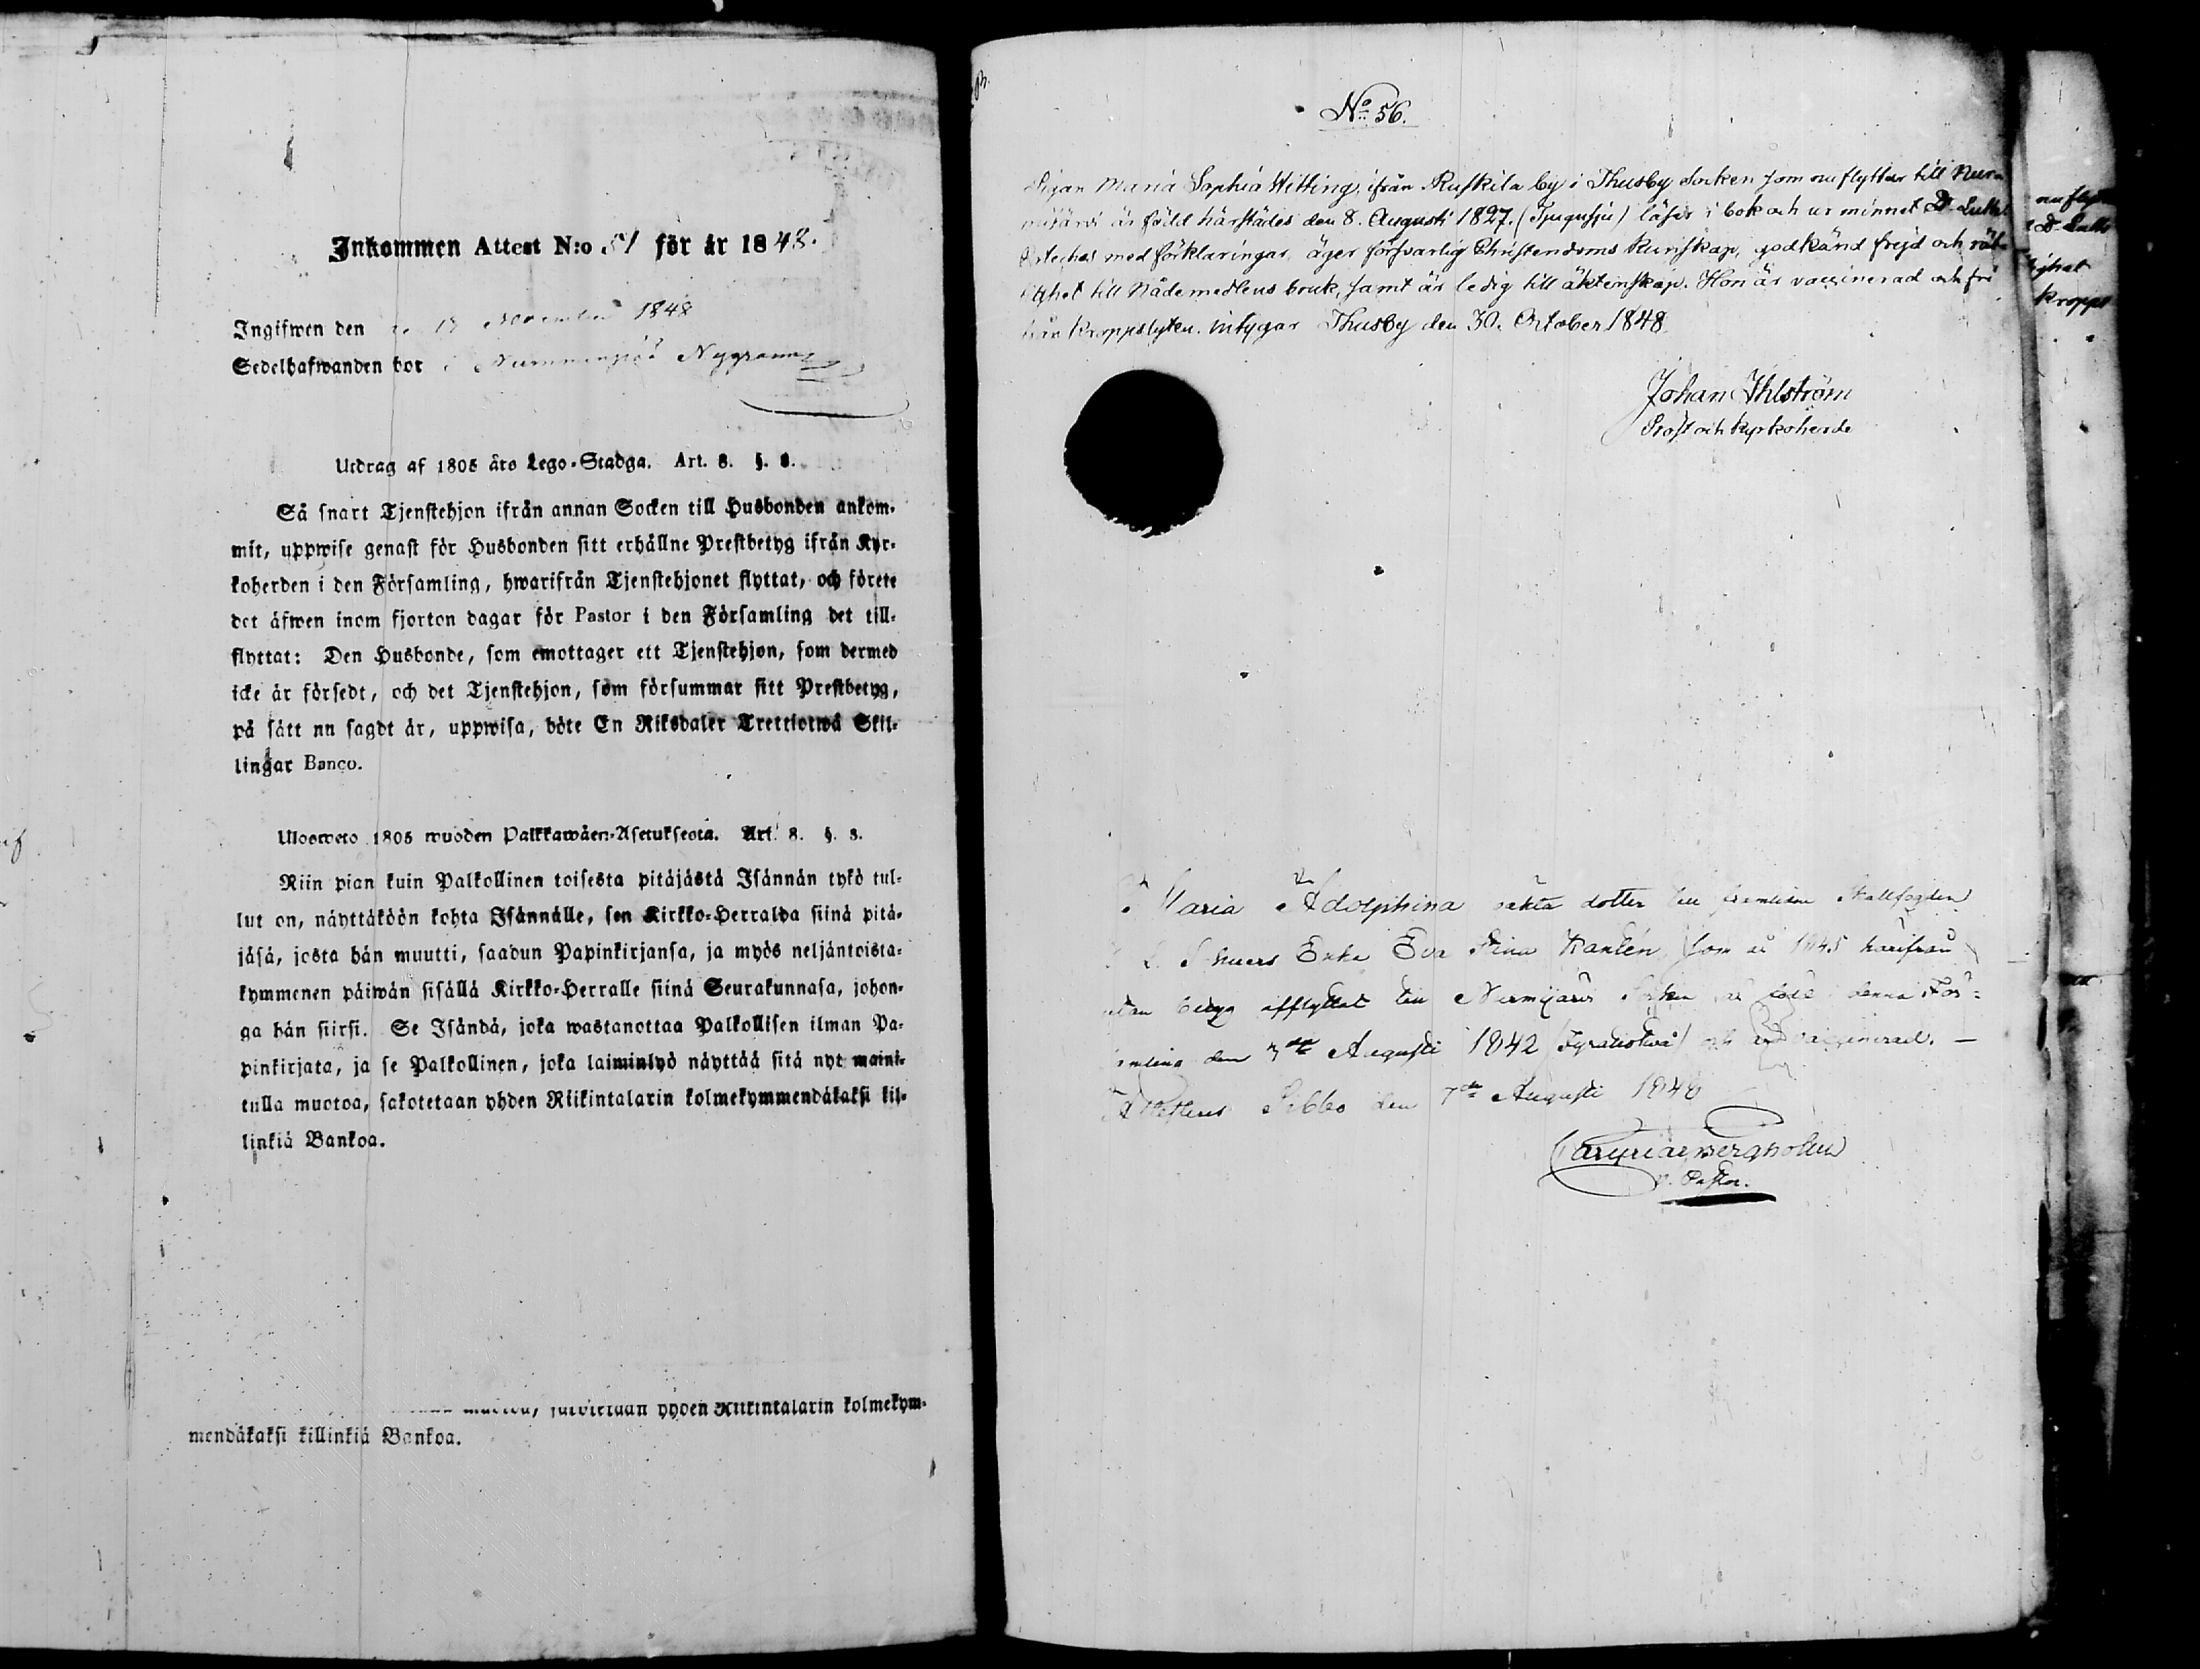 Inkommen Attest N:o 51 för år 1848.
Ingifwen den 18 November 1848
Sedelhafwanden bor i Nummenpää Nygrann
Utdrag af 1805 års Lego-Stadga. Art. 8. §. 8.
Så snart Tjenstehjon ifrån annan Socken till Husbonden ankom-
mit, uppwise genast för Husbonden sitt erhållne Prestbetyg ifrån Kyr-
koherden i den Församling, hwarifrån Tjenstehjonet flyttat, och förete
det äfwen inom fjorton dagar för Pastor i den Församling det till-
flyttat: Den Husbonde, som emottager ett Tjenstehjon, som dermed
icke är försedt, och det Tjenstehjon, som försummar sitt Prestbetyg,
på sätt nn sagdt är, uppwisa, böte En Riksdaler Trettiotwå Skil-
lingar Banco.
Ulosweto 1805 wuoden Palkkawäen-Asetuksesta. Art. 8. §. 8.
Niin pian kuin Palkollinen toisesta pitäjästä Isännän tykö tul-
lut on, näyttäköön kohta Isännälle, sen Kirkko-Herralda siinä pitä-
jäsä, josta hän muutti, saadun Papinkirjansa, ja myös neljäntoista-
kymmenen päiwän sisällä Kirkko-Herralle siinä Seurakunnasa, johon-
ga hän siirsi. Se Isändä, joka wastanottaa Palkollisen ilman Pa-
pinkirjata, ja se Palkollinen, joka laiminlyö näyttää sitä nyt maini-
tulla muotoa, sakotetaan yhden Riikintalarin kolmekymmendäkaksi kil-
linkiä Bankoa.
yhden Riikintalarin kolmekym-
mendäkaksi killinkiä Bankoa.
No 56.
Pigan Maria Sophia Witting, ifrån Ruskila by i Thusby Socken som nu flyttar till Nur-
mijärvi är född härstädes den 8. Augusti 1827. (Tjugusju) läser i bok och ur minnet Dr. Luthi
Cateches med förklaringar, äger försvarlig Christendoms kunskap, godkänd frejd och rät-
tighet till Nådemedlens bruk, samt är ledig till äktenskap. Hon är vaccinerad och fri
från kroppslyten. intygar Thusby den 30. October 1848.
Johan Ahlström
Prost och Kyrkoherde
Maria Adolphina äkta dotter till framlidne Skallfogden
Enka Eva Stina som år 1845 härifrån
utan betyg afflyttat till Nurmijärvi Socken är född i denna För-
samling den 3de Augusti 1842 (Fyratiotvå) och vaccinerad. —
Attesteras Sibbo den 7de Augusti 1848
Bergholm
v. Pastor.
nu flyt
Dr. Luthi
tighet
kropps